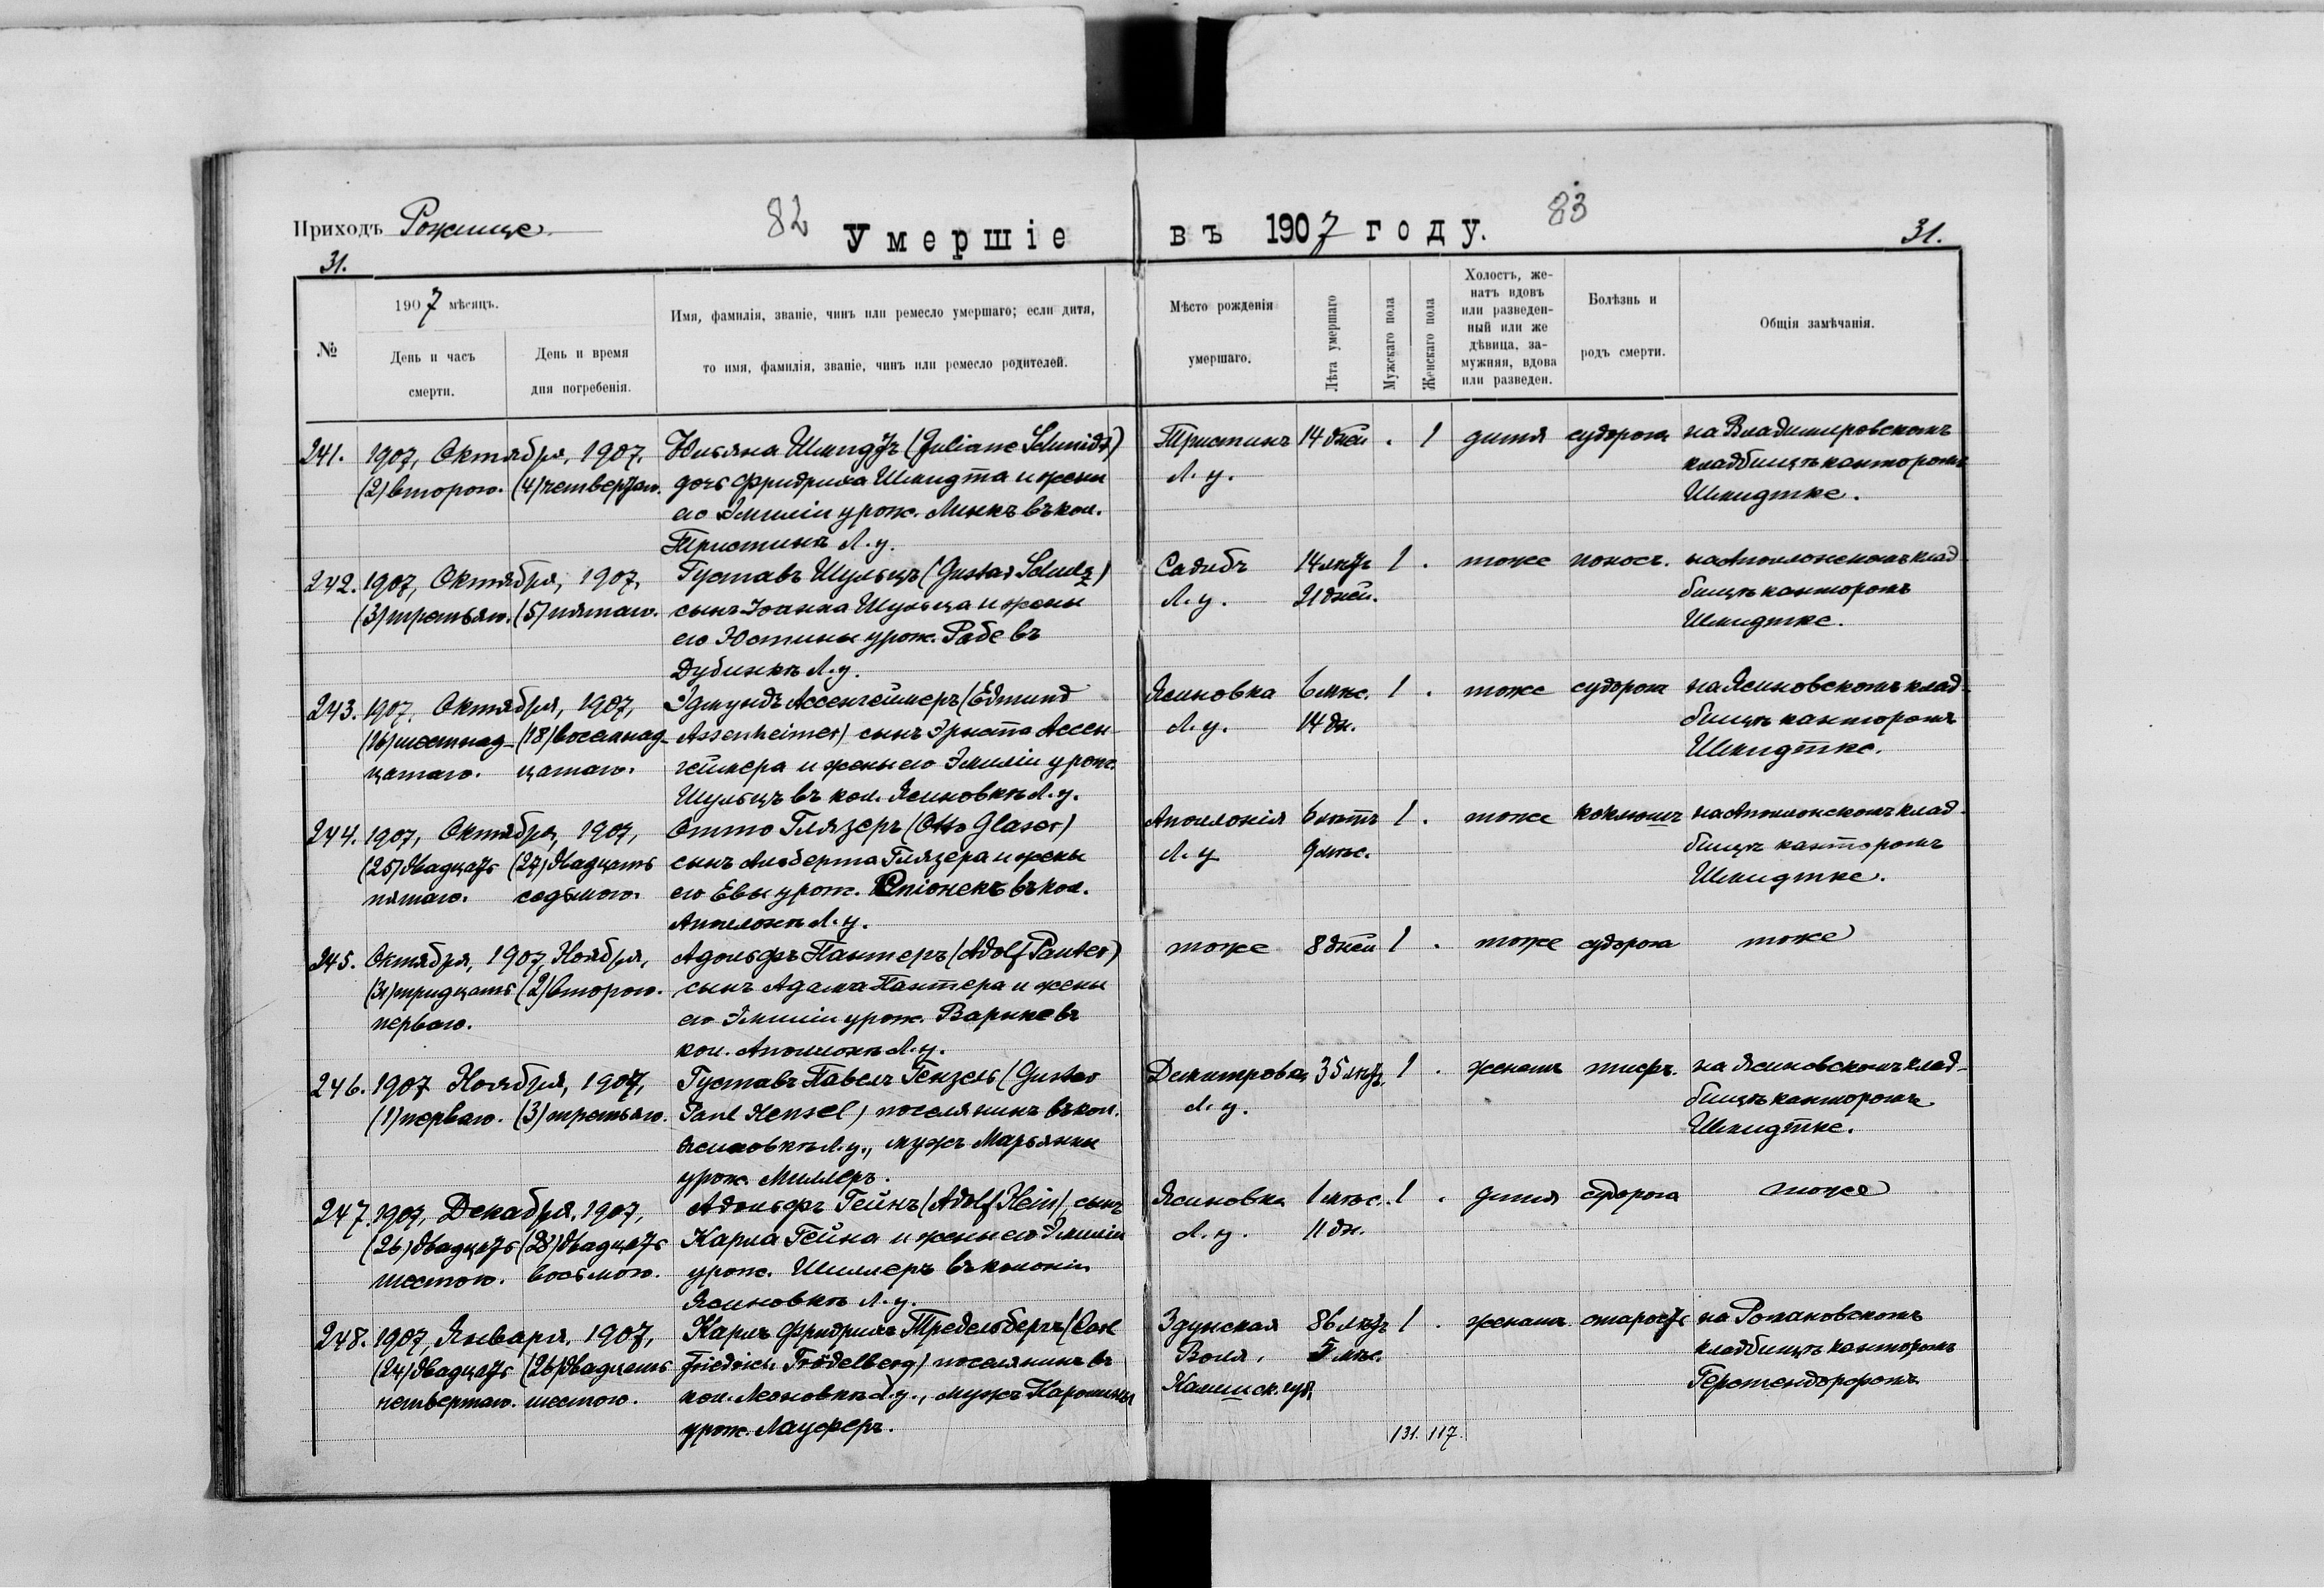 Приходъ Рожище
82
Умершіе
въ 1907 году.
83
31.
31.
№
1907 мѣсяцъ.
День и часъ
смерти.
День и время
дня погребенія.
Имя, фамилія, званіе, чинъ или ремесло умершаго; если дитя,
то имя, фамилія, званіе, чинъ или ремесло родителей.
Мѣсто рожденія
умершаго.
Лѣта умершаго
Мужскаго пола
Женскаго пола
Холостъ, же-
натъ вдовъ
или разведен-
ный или же
дѣвица, за-
мужняя, вдова
или разведен.
Болѣзнь и
родъ смерти.
Общія замѣчанія.
241. 1907, Октября, 1907, Юльяна Шмидтъ (Juliane Schmidt) Тристинъ 14 дней . 1 дитя судорога на Владимировскомъ
(2) второго. (4) четвертаго. дочь Фридриха Шмидта и жены Л. у. кладбищѣ канторомъ
его Эмиліи урож. Линкъ въ кол. Шмидтке.
Тристинъ Л. у.
242. 1907, Октября, 1907, Густавъ Шульцъ (Gustav Schulz) Садибъ 14 лѣтъ 1 . тоже поносъ. на Аполонскомъ клад-
(3) третьяго. (5) пятаго. сынъ Іоанна Шульца и жены Л. у. 21 дней. бищѣ канторомъ
его Юстины урож. Рабе въ Шмидтке.
Дубинкѣ Л. у.
243. 1907, Октября, 1907, Эдмундъ Ассенгеймеръ (Edmund Ясиновка 6 мѣс. 1 . тоже судорога на Ясиновскомъ клад-
(16) шестнад- (18) восемнад- Assenheimer) сынъ Эрнста Ассен- Л. у. 14 дн. бищѣ канторомъ
цатаго. цатаго. геймера и жены его Эмиліи урож. Шмидтке.
Шульцъ въ кол. Ясиновкѣ Л. у.
244. 1907, Октября, 1907, Отто Глязеръ (Otto Glaser) Аполлонія 6 лѣтъ 1 . тоже коклюшъ на Аполонскомъ клад-
(25) двадцать (27) двадцать сынъ Альберта Глязера и жены Л. у 9 мѣс. бищѣ канторомъ
пятаго. седьмого. его Евы урож. Спіонекъ въ кол. Шмидтке.
Аполлонѣ Л. у.
245. Октября, 1907, Ноября, Адольфъ Пантеръ (Adolf Panter) тоже 8 дней 1 . тоже судорога тоже
(31) тридцать (2) второго. сынъ Адама Пантера и жены
перваго. его Эмиліи урож. Варнке въ
кол. Аполлонѣ Л. у.
246. 1907 Ноября, 1907, Густавъ Павелъ Гензель (Gustav Дмитровка 35 лѣтъ. 1 . женатъ тифъ. на Ясиновскомъ клад-
(1) перваго. (3) третьяго. Paul Hensel) поселянинъ въ кол. Л. у. бищѣ канторомъ
Ясиновкѣ Л. у., мужъ Марьянны Шмидтке.
урож. Миллеръ.
247. 1907, Декабря, 1907, Адольфъ Гейнъ (Adolf Hein), сынъ Ясиновка 1 мѣс. 1 . дитя судорога тоже
(26) двадцать (28) двадцать Карла Гейна и жены его Эмиліи Л. у. 11 дн.
шестого. восьмого. урож. Шиллеръ въ колоніи
Ясиновкѣ Л. у.
248. 1907, Января, 1907, Карлъ Фридрихъ Тредельбергъ (Carl Здунская 86 лѣтъ 1 . женатъ старость на Романовскомъ
(24) двадцать (26) двадцать Friedrich Trödelberg) поселянинъ въ Воля, 5 мѣс. кладбищѣ канторомъ
четвертаго. шестого. кол. Леоновкѣ Л. у., мужъ Каролины Калишск. губ. Герстендорфомъ
урож. Лауферъ.
131. 117.